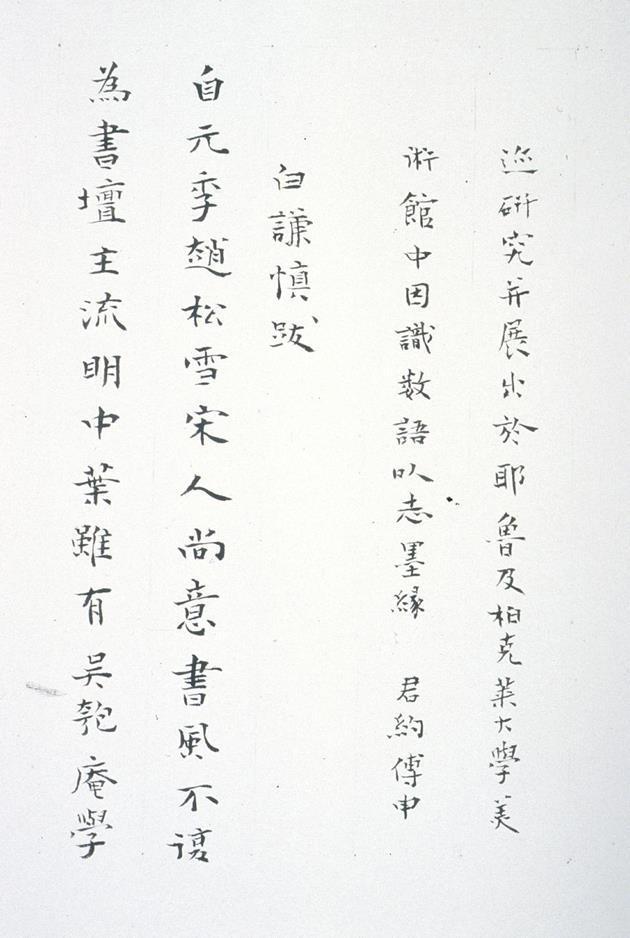 巡研究并展出於耶魯及柏克萊大學美
術館中因識数語以志墨緣 君約傅申
白謙慎跋
自元季趙松雪宋人尚意書風不復
為書壇主流明中葉雖有吴匏庵學